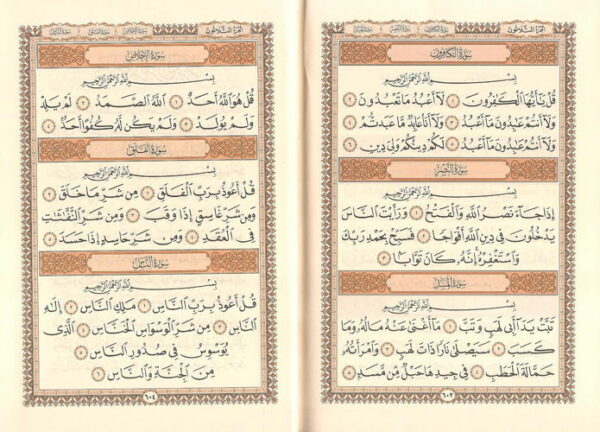 الجزء الثلاثون
سورة الكافرون
بِسْمِ اللَّهِ الرَّحْمَٰنِ الرَّحِيمِ
قُلْ يَٰٓأَيُّهَا ٱلْكَٰفِرُونَ ١ لَآ أَعْبُدُ مَا تَعْبُدُونَ ٢
وَلَآ أَنتُمْ عَٰبِدُونَ مَآ أَعْبُدُ ٣ وَلَآ أَنَا۠ عَابِدٌ مَّا عَبَدتُّمْ ٤
وَلَآ أَنتُمْ عَٰبِدُونَ مَآ أَعْبُدُ ٥ لَكُمْ دِينُكُمْ وَلِىَ دِينِ ٦
سورة النصر
بِسْمِ اللَّهِ الرَّحْمَٰنِ الرَّحِيمِ
إِذَا جَآءَ نَصْرُ ٱللَّهِ وَٱلْفَتْحُ ١ وَرَأَيْتَ ٱلنَّاسَ
يَدْخُلُونَ فِى دِينِ ٱللَّهِ أَفْوَاجًا ٢ فَسَبِّحْ بِحَمْدِ رَبِّكَ
وَٱسْتَغْفِرْهُ إِنَّهُۥ كَانَ تَوَّابًۢا ٣
سورة المسد
بِسْمِ اللَّهِ الرَّحْمَٰنِ الرَّحِيمِ
تَبَّتْ يَدَآ أَبِى لَهَبٍ وَتَبَّ ١ مَآ أَغْنَىٰ عَنْهُ مَالُهُۥ وَمَا
كَسَبَ ٢ سَيَصْلَىٰ نَارًا ذَاتَ لَهَبٍ ٣ وَٱمْرَأَتُهُۥ
حَمَّالَةَ ٱلْحَطَبِ ٤ فِى جِيدِهَا حَبْلٌ مِّن مَّسَدٍۭ ٥
٦٠٣
الجزء الثلاثون
سورة الإخلاص
بِسْمِ اللَّهِ الرَّحْمَٰنِ الرَّحِيمِ
قُلْ هُوَ ٱللَّهُ أَحَدٌ ١ ٱللَّهُ ٱلصَّمَدُ ٢ لَمْ يَلِدْ
وَلَمْ يُولَدْ ٣ وَلَمْ يَكُن لَّهُۥ كُفُوًا أَحَدٌۢ ٤
سورة الفلق
بِسْمِ اللَّهِ الرَّحْمَٰنِ الرَّحِيمِ
قُلْ أَعُوذُ بِرَبِّ ٱلْفَلَقِ ١ مِن شَرِّ مَا خَلَقَ ٢
وَمِن شَرِّ غَاسِقٍ إِذَا وَقَبَ ٣ وَمِن شَرِّ ٱلنَّفَّٰثَٰتِ
فِى ٱلْعُقَدِ ٤ وَمِن شَرِّ حَاسِدٍ إِذَا حَسَدَ ٥
سورة الناس
بِسْمِ اللَّهِ الرَّحْمَٰنِ الرَّحِيمِ
قُلْ أَعُوذُ بِرَبِّ ٱلنَّاسِ ١ مَلِكِ ٱلنَّاسِ ٢ إِلَٰهِ
ٱلنَّاسِ ٣ مِن شَرِّ ٱلْوَسْوَاسِ ٱلْخَنَّاسِ ٤ ٱلَّذِى
يُوَسْوِسُ فِى صُدُورِ ٱلنَّاسِ ٥
مِنَ ٱلْجِنَّةِ وَٱلنَّاسِ ٦
٦٠٤